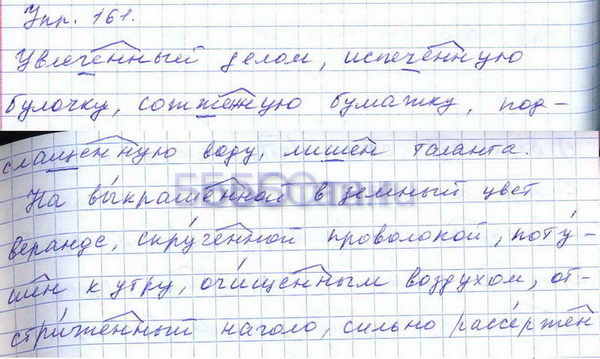 Упр. 161.
Увлечённый делом, испечённую
булочку, сожжённую бумажку, под-
слащённую воду, лишён таланта.
На вы́крашенной в земный цвет
веранде, скру́ченной проволокой, поту́-
шен к утру, очи́щенным воздухом, от-
стри́женный наголо, сильно рассе́ржен